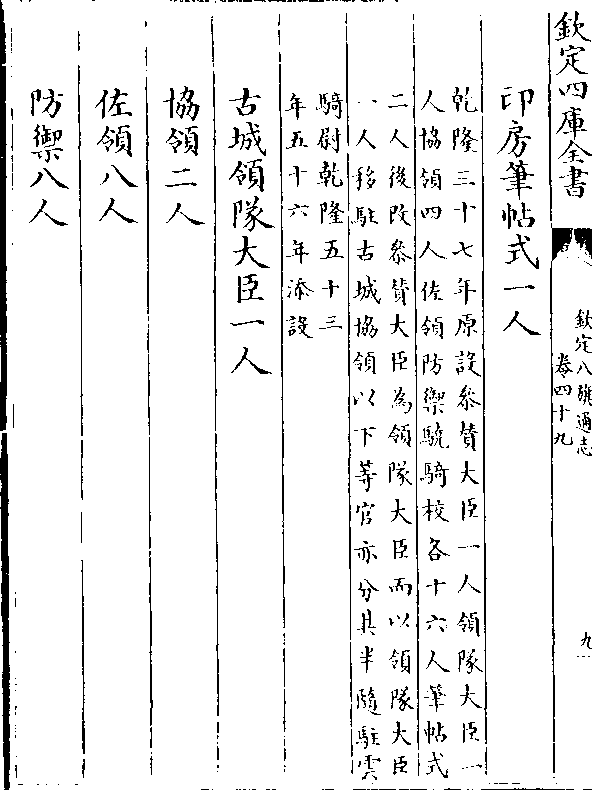 欽定四庫全書
欽定八旗通志
卷四十九
九
印房筆帖式一人
乾隆三十七年原設叅贊大臣一人領隊大臣一
人協領四人佐領防禦驍騎校各十六人筆帖式
二人後改叅贊大臣為領隊大臣而以領隊大臣
一人移駐古城協領以下等官亦分其半隨駐雲
騎尉乾隆五十三
年五十六年添設
古城領隊大臣一人
協領二人
佐領八人
防禦八人